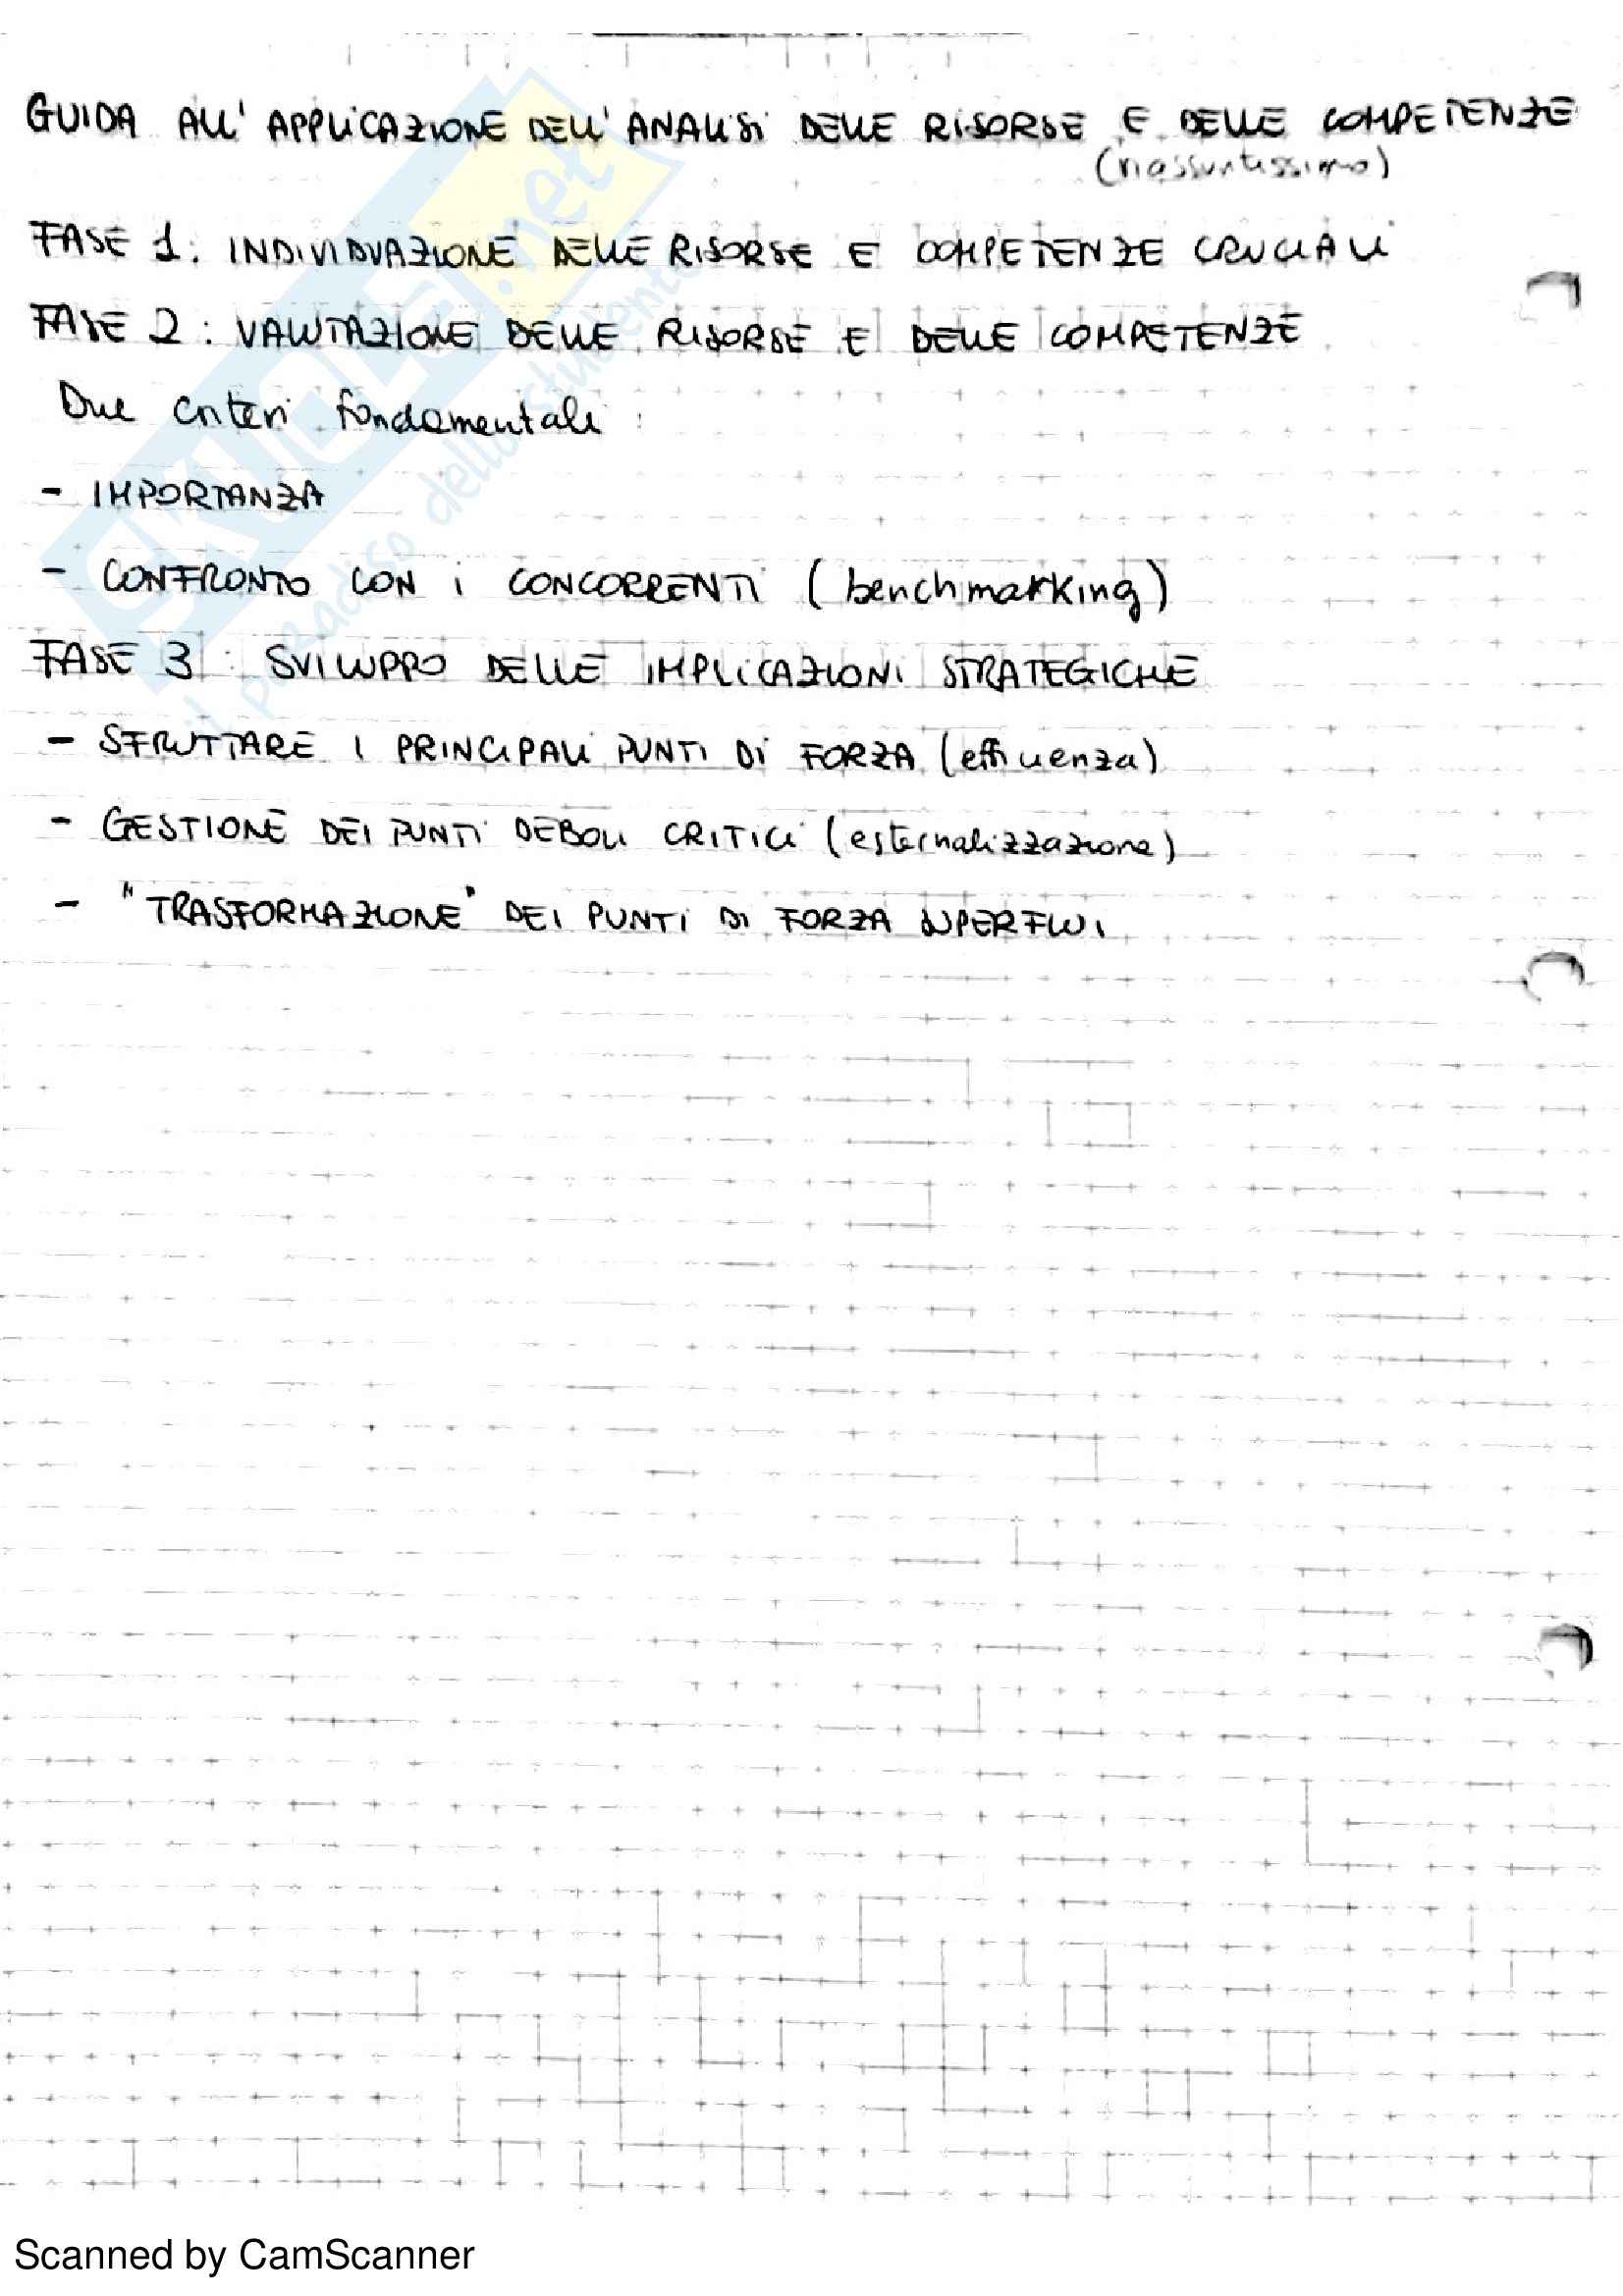 GUIDA ALL'APPLICAZIONE DELL'ANALISI DELLE RISORSE E DELLE COMPETENZE
(riassuntissimo)
FASE 1: INDIVIDUAZIONE DELLE RISORSE E COMPETENZE CRUCIALI
FASE 2: VALUTAZIONE DELLE RISORSE E DELLE COMPETENZE
Due criteri fondamentali:
- IMPORTANZA
- CONFRONTO CON I CONCORRENTI (benchmarking)
FASE 3: SVILUPPO DELLE IMPLICAZIONI STRATEGICHE
- SFRUTTARE I PRINCIPALI PUNTI DI FORZA (efficienza)
- GESTIONE DEI PUNTI DEBOLI CRITICI (esternalizzazione)
- "TRASFORMAZIONE" DEI PUNTI DI FORZA SUPERFLUI
SKUOLA.net
il paradiso dello studente
Scanned by CamScanner